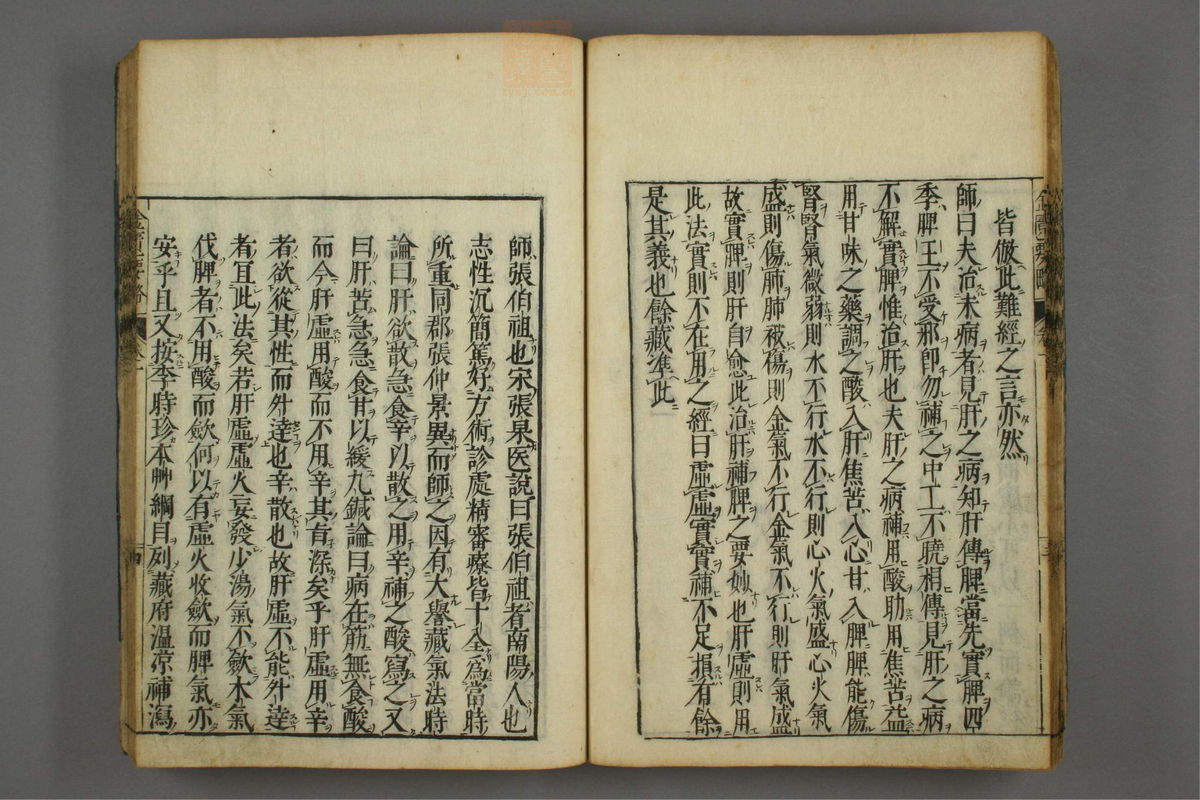 皆倣此難經之言亦然
師曰夫治未病者見肝之病知肝傳脾當先實脾四
季脾王不受邪卽勿補之中工不曉相傳見肝之病
不解實脾惟治肝也夫肝之病補用酸助用焦苦益
用甘味之藥調之酸入肝焦苦入心甘入脾脾能傷
腎腎氣微弱則水不行水不行則心火氣盛心火氣
盛則傷肺肺被傷則金氣不行金氣不行則肝氣盛
故實脾則肝自愈此治肝補脾之要妙也肝虛則用
此法實則不在用之經曰虛虛實實補不足損有餘
是其義也餘藏準此
師張伯祖也宋張杲医說曰張伯祖者南陽人也
志性沉簡篤好方術診處精審療皆十全爲當時
所重同郡張仲景異而師之因有大譽藏氣法時
論曰肝欲散急食辛以散之用辛補之酸寫之又
曰肝苦急急食甘以緩九鍼論曰病在筋無食酸
而今肝虛用酸而不用辛其旨深矣乎肝虛用辛
者欲從其性而升達也辛散也故肝虛不能升達
者宜此法矣若肝虛虛火妄發少陽氣不斂木氣
伐脾者不用酸而斂何以有虛火收斂而脾氣亦
安乎且又按李時珍本艸綱目列藏府温凉補瀉